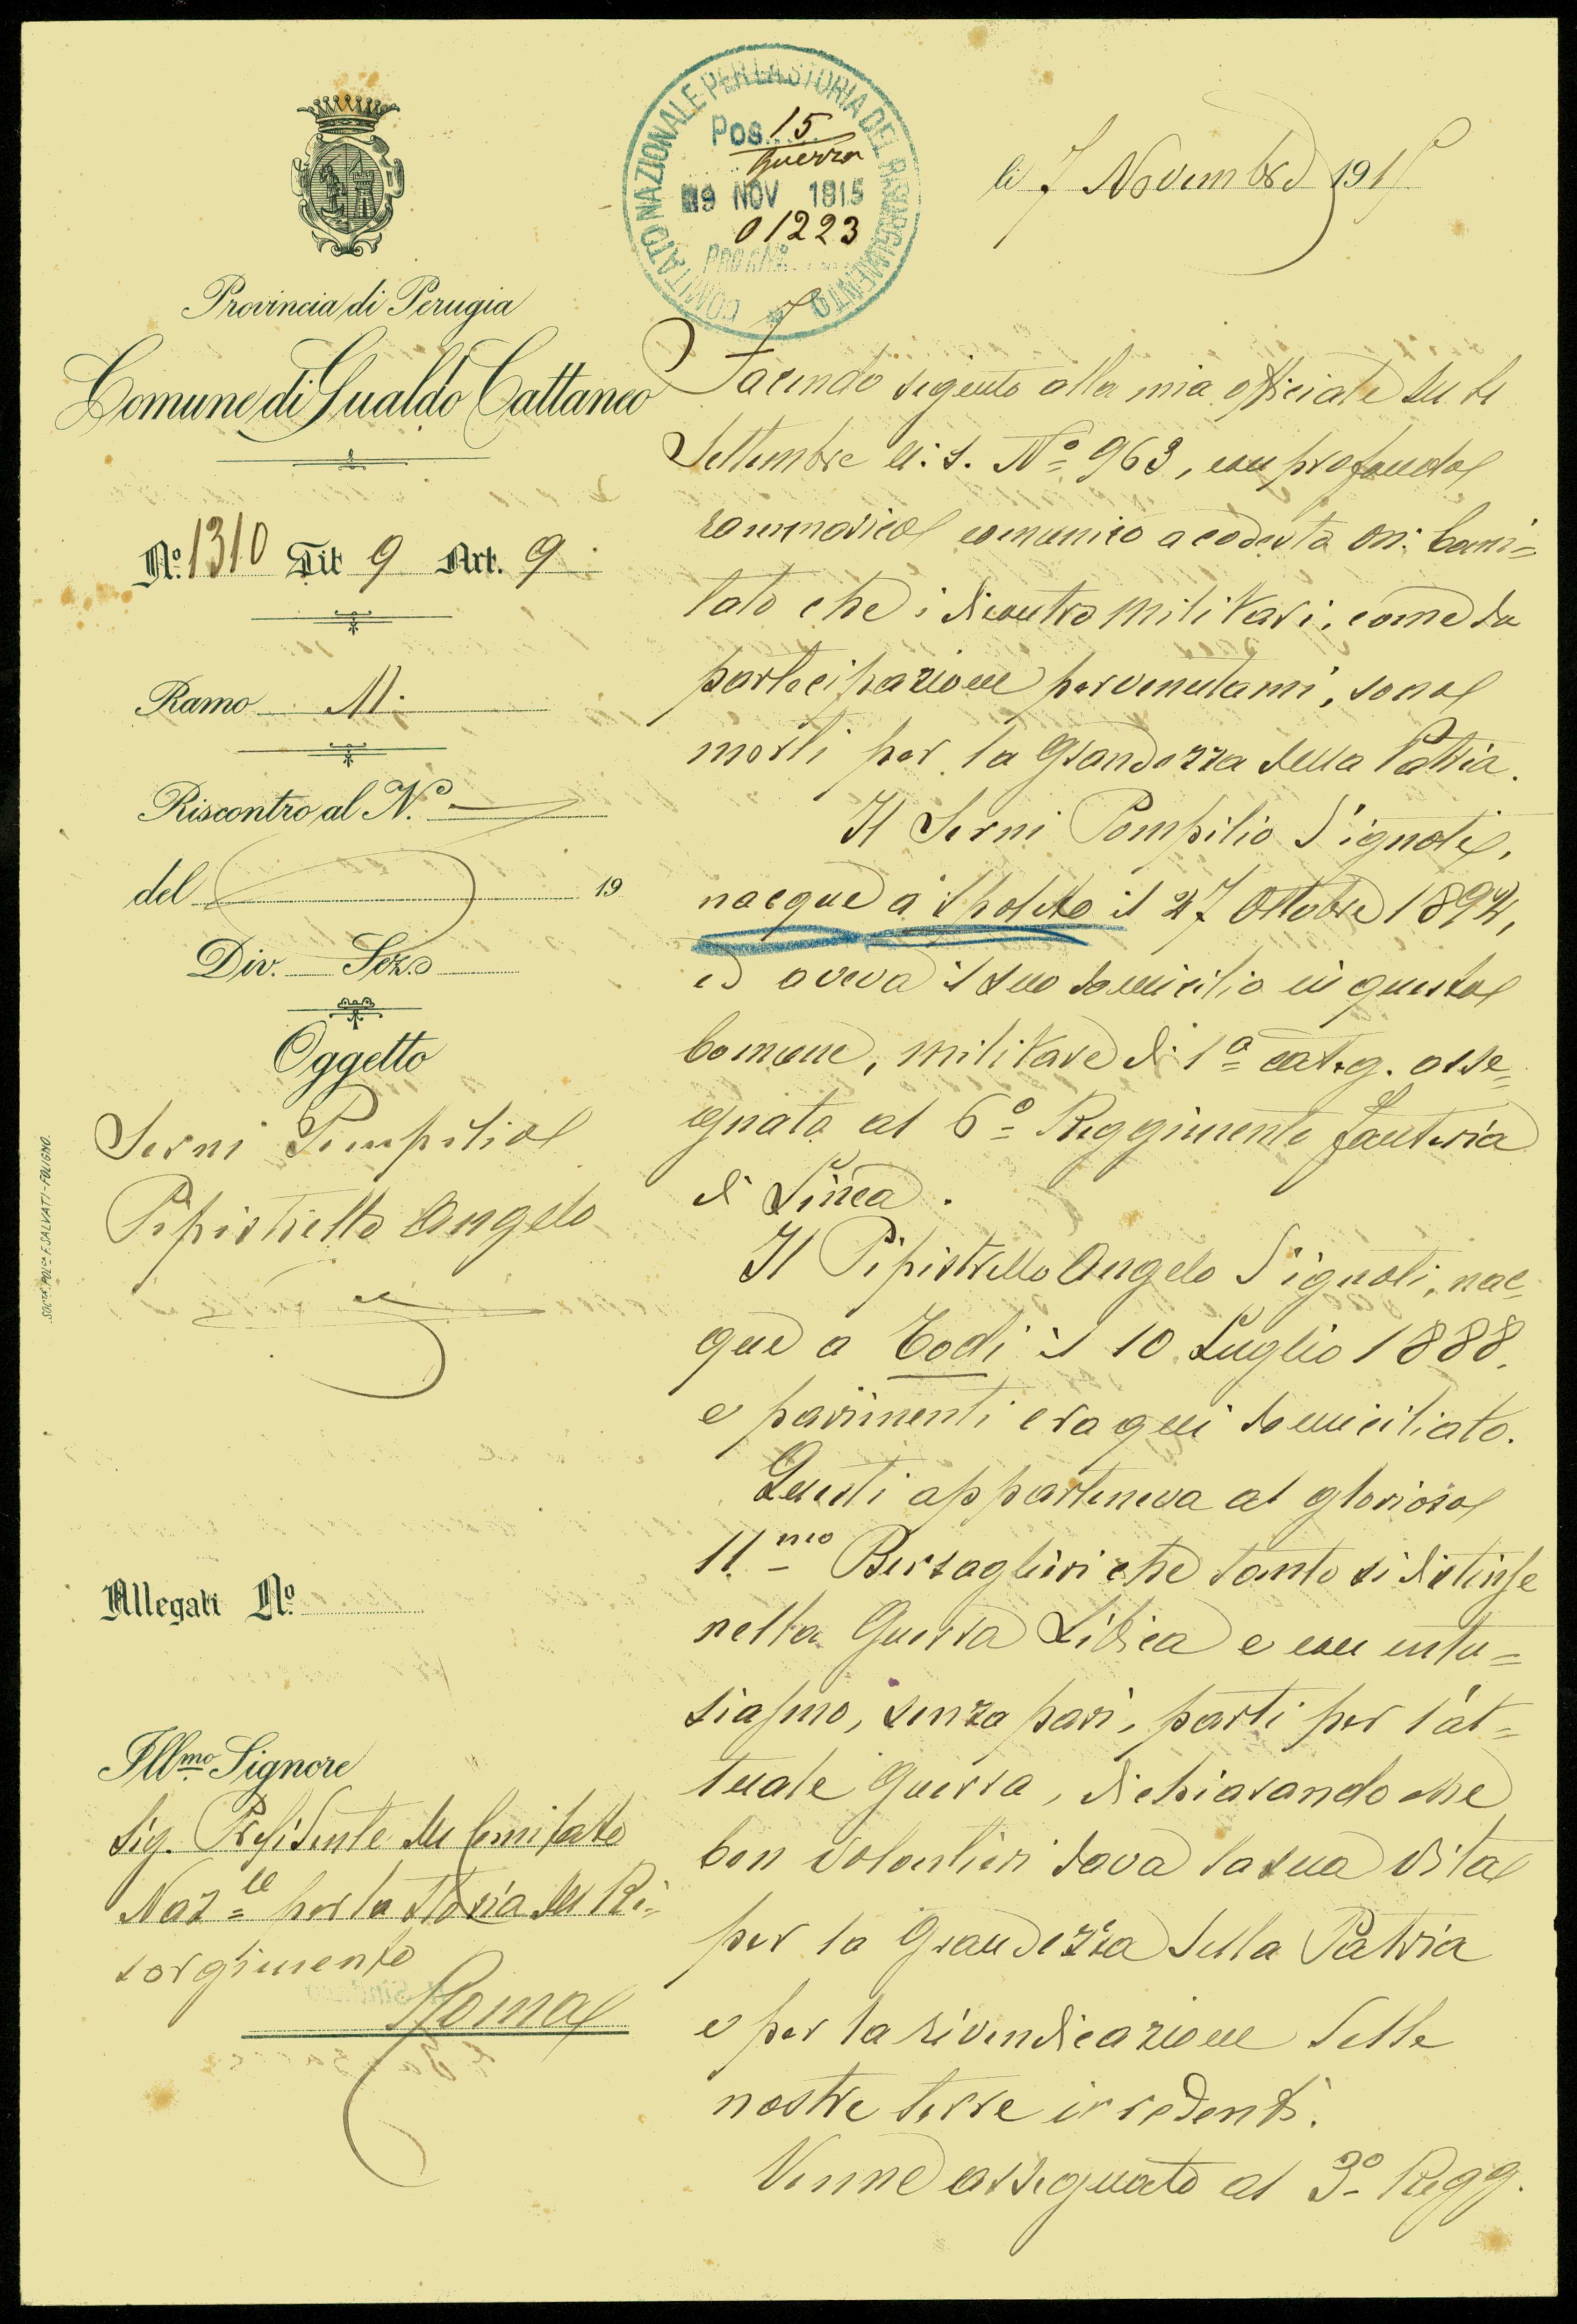 COMITATO NAZIONALE PER LA STORIA DEL RISORGIMENTO
Pos. 15
Guerra
9 NOV 1915
01223
li 7 Novembre 1915
Provincia di Perugia
Comune di Gualdo Cattaneo
N.o 1310 Tit 9 Art. 9
Ramo M.
Riscontro al N.o
del 19
Div. Sez.
Oggetto
Serni Pompilio
Pipistrello Angelo
Allegati N.o
Ill.mo Signore
Sig. Presidente del Comitato
Naz.le per la storia del Ri=
sorgimento
Roma
SOC.tà POL.ca F. SALVATI - FOLIGNO.
Facendo seguito alla mia officiale del
Settembre u: s. No 963, con profondo
rammarico comunico a codesto On: Comi=
tato che i dicontro militari, come da
partecipazione pervenutami, sono
morti per la Grandezza della Patria.
Il Serni Pompilio d'ignoti,
nacque a Spoleto il 27 Ottobre 1894,
ed aveva il suo domicilio in questo
Comune, militare di 1a categ. asse=
gnato al 6o Reggimento fanteria
di Linea.
Il Pipistrello Angelo d'ignoti, nac=
que a Todi il 10 Luglio 1888.
e parimenti era qui domiciliato.
Questi apparteneva al glorioso
11.mo Bersaglieri che tanto si distinse
nella Guerra Libica e con entu=
siasmo, senza pari, partì per l'at=
tuale Guerra, dichiarando che
ben volentieri dava la sua vita
per la Grandezza della Patria
e per la rivendicazione delle
nostre terre irredenti.
Venne assegnato al 3o Regg.